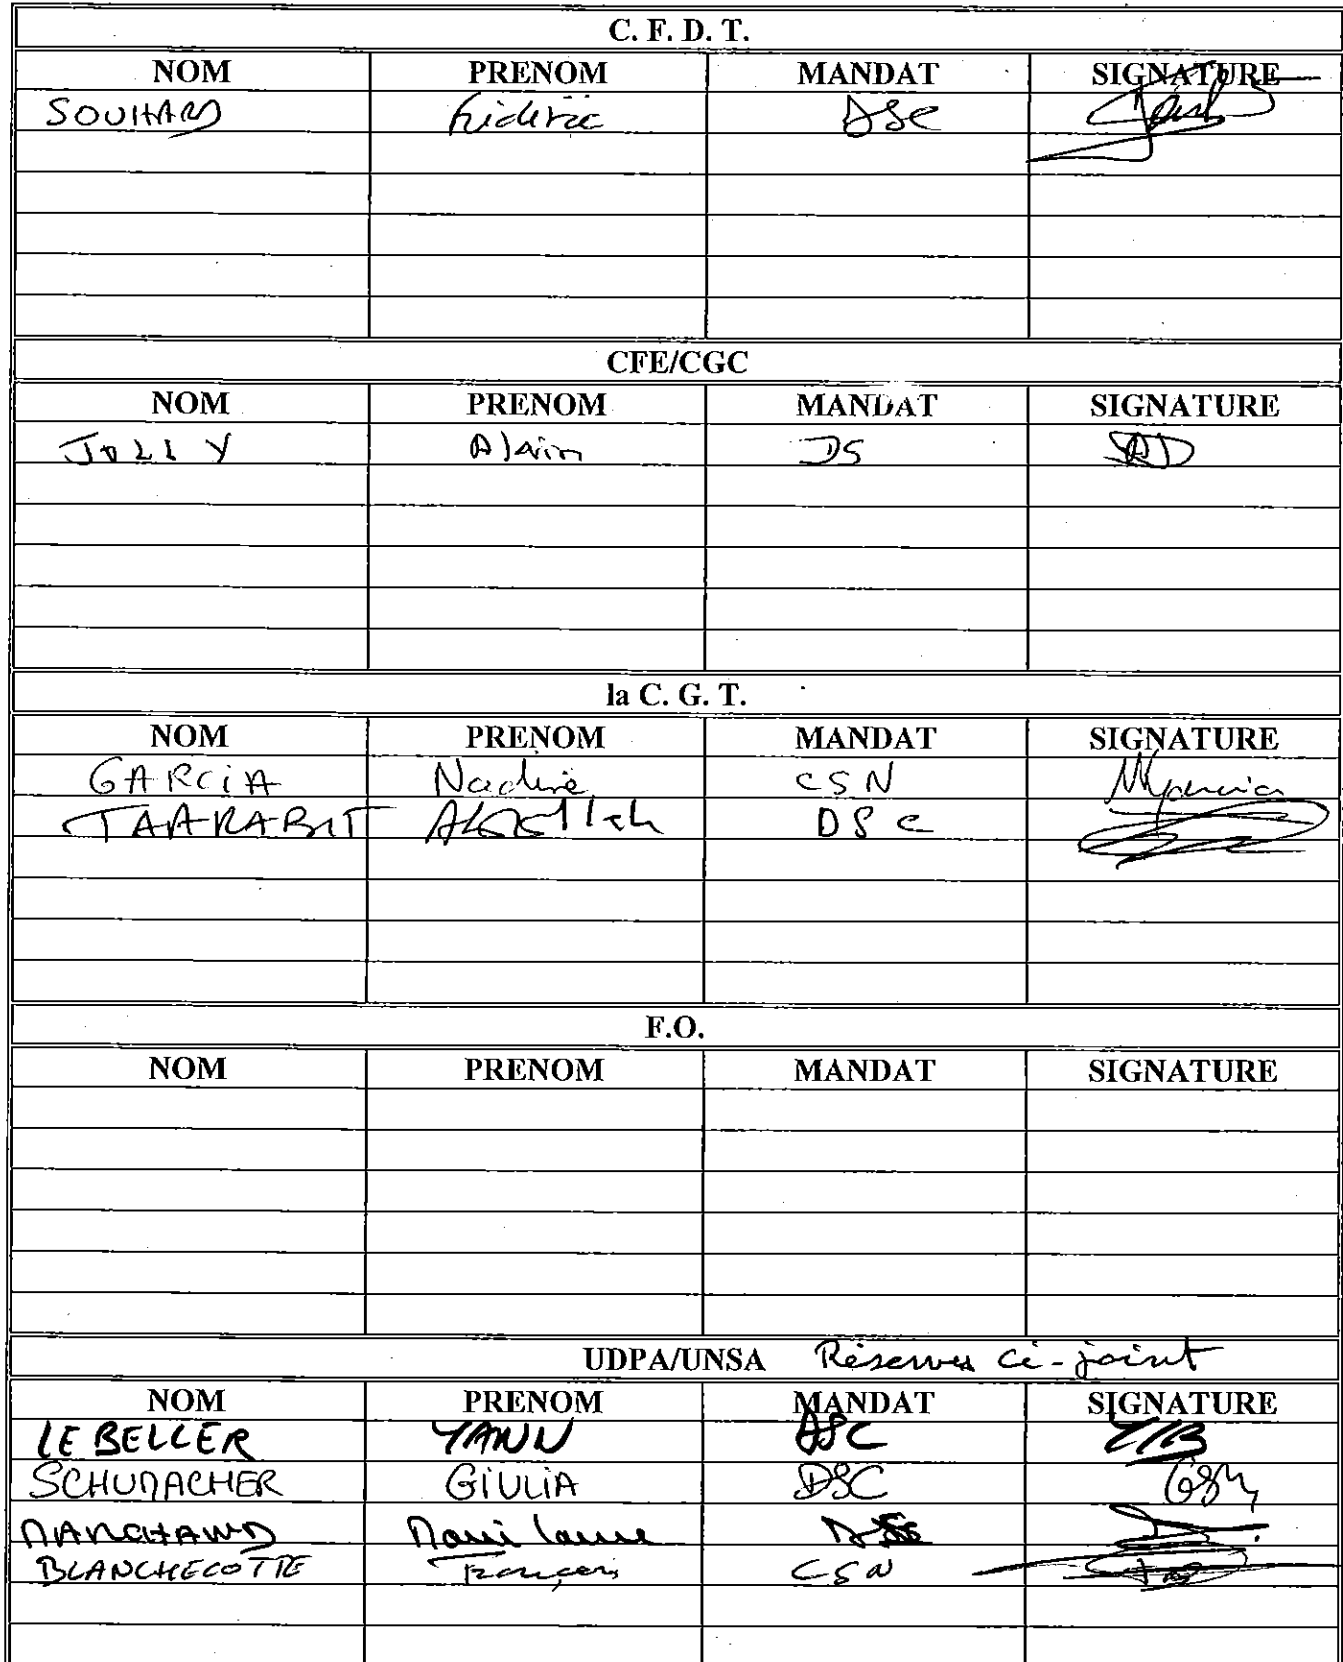 C. F. D. T.
NOM PRENOM MANDAT SIGNATURE
SOUHARD Frédéric DSC
CFE/CGC
NOM PRENOM MANDAT SIGNATURE
JOLLY Alain DS
la C. G. T.
NOM PRENOM MANDAT SIGNATURE
GARCiA Nadine CSN NGarcia
TAARABIT Abdellah DSC
F.O.
NOM PRENOM MANDAT SIGNATURE
UDPA/UNSA Réserves ci-joint
NOM PRENOM MANDAT SIGNATURE
LE BELLER YANN DSC YLB
SCHUMACHER GiULiA DSC GSM
MARCHAND Marie Laure
BLANCHECOTTE François CSN